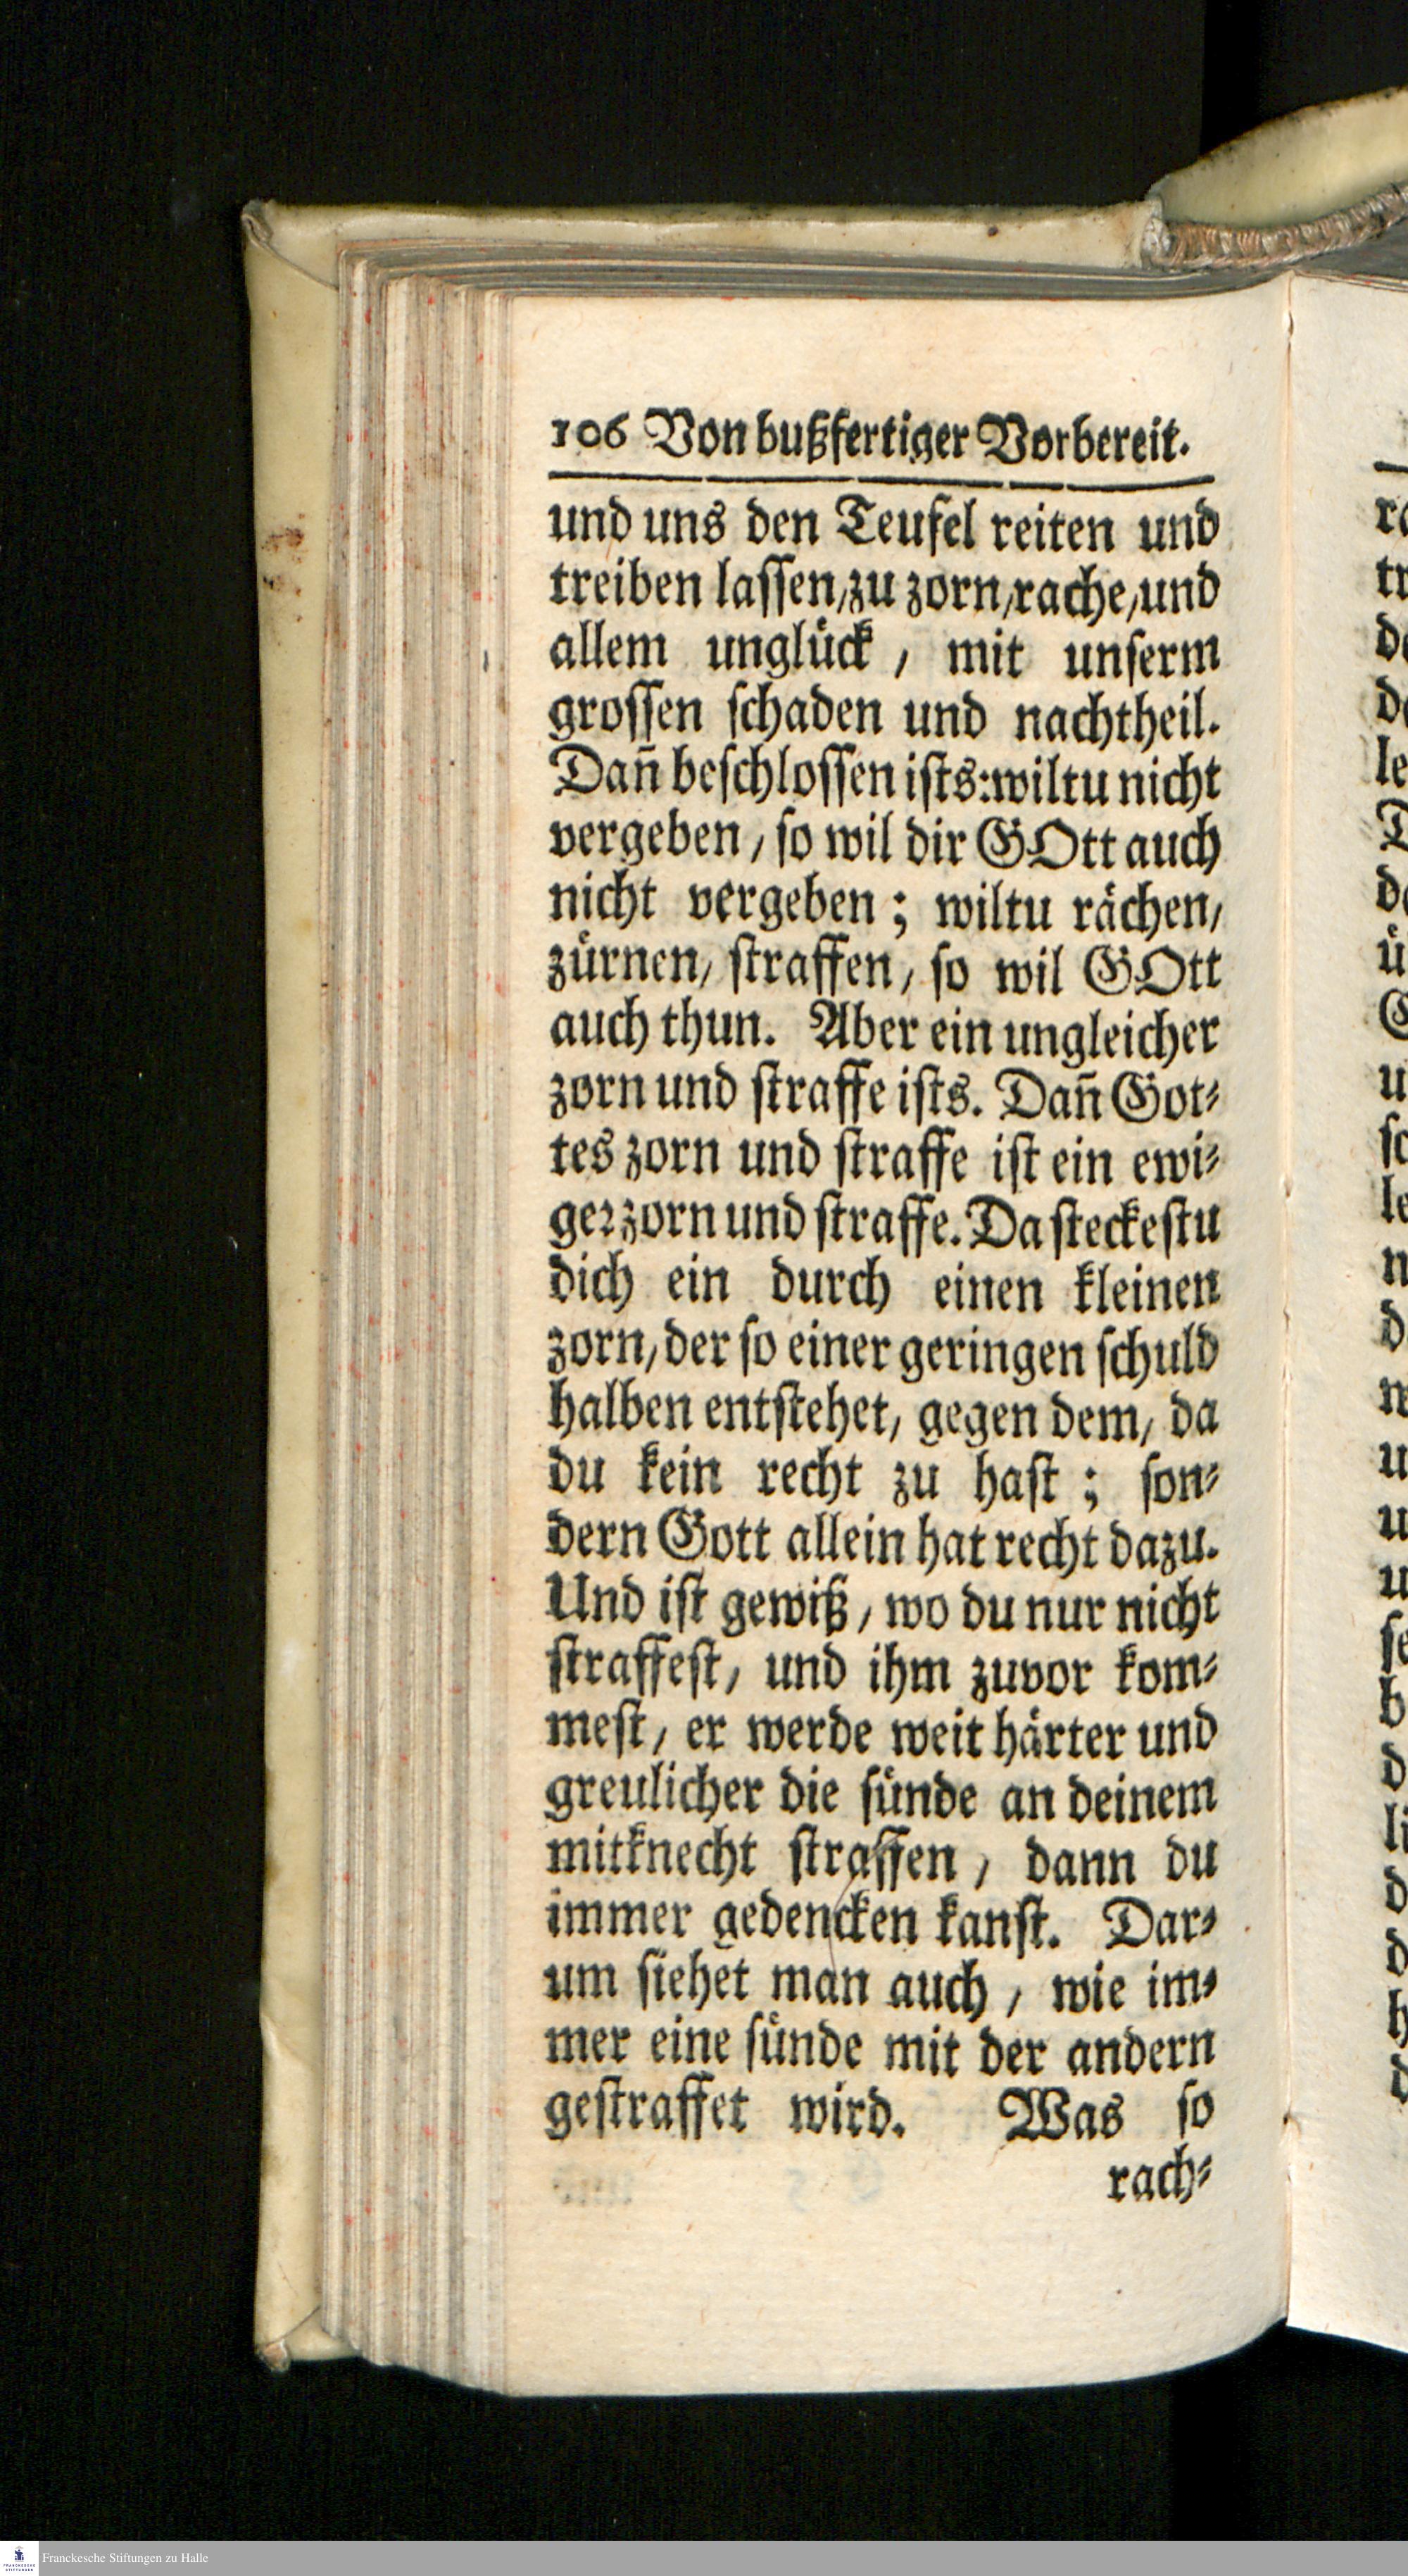 106 Von bußfertiger Vorbereit.
und uns den Teufel reiten und
treiben lassen/zu zorn/rache/und
allem unglück / mit unserm
grossen schaden und nachtheil.
Dañ beschlossen ists:wiltu nicht
vergeben / so wil dir GOtt auch
nicht vergeben ; wiltu rächen/
zürnen/ straffen/ so wil GOtt
auch thun. Aber ein ungleicher
zorn und straffe ists. Dañ Got⸗
tes zorn und straffe ist ein ewi⸗
geꝛ zorn und straffe. Da steckestu
dich ein durch einen kleinen
zorn/ der so einer geringen schuld
halben entstehet/ gegen dem/ da
du kein recht zu hast ; son⸗
dern Gott allein hat recht dazu.
Und ist gewiß / wo du nur nicht
straffest/ und ihm zuvor kom⸗
mest/ er werde weit härter und
greulicher die sünde an deinem
mitknecht straffen / dann du
immer gedencken kanst. Dar⸗
um siehet man auch / wie im⸗
mer eine sünde mit der andern
gestraffet wird. Was so
rach⸗
Franckesche Stiftungen zu Halle